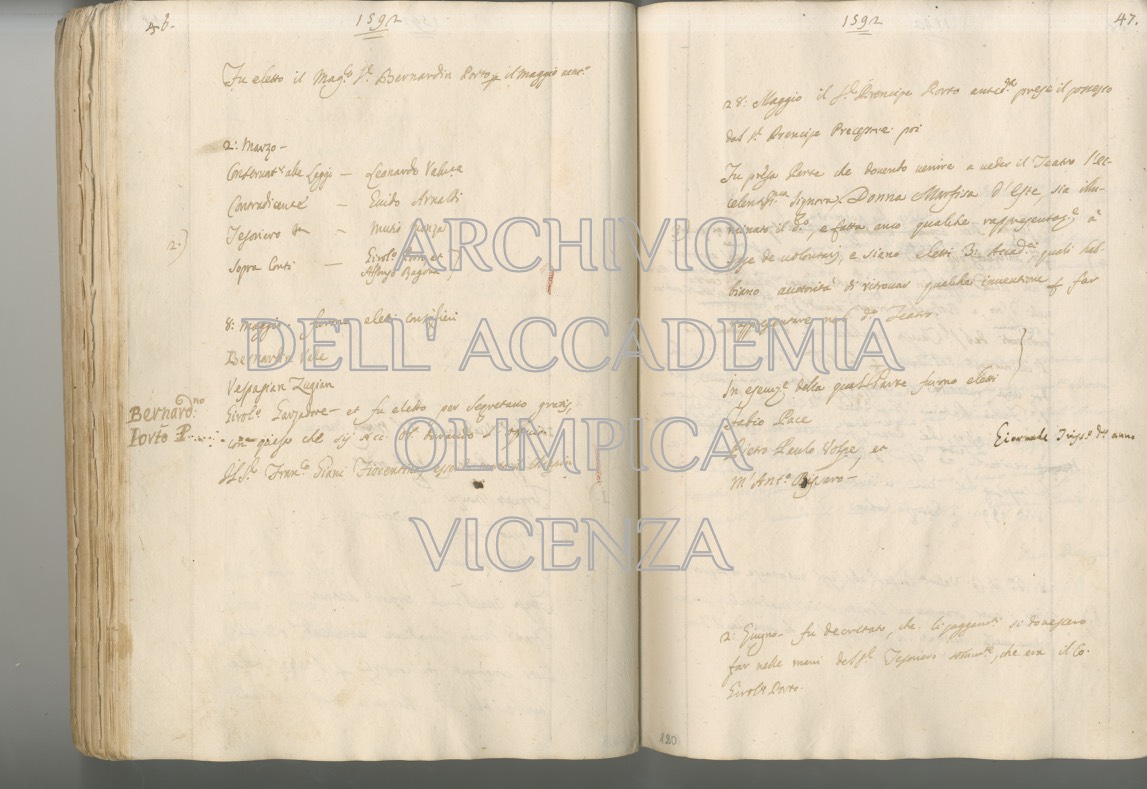 46.
1592
Fu eletto il Mag.co S.r Bernardin Porto p il Maggio vent.o
2: Marzo -
Conservat.r alle Leggi - Leonardo Valmar.a
Contradicente - Guido Arnaldi
Tesoriero - Mutio
2.)
Sopra Conti - Girol.o Porto et
Alfonso Ragona
8: Maggio - furono eletti Consiglieri
Bernardin Vale
Vespasian Zugian
Bernard.no
Porto P.
Girol.o Garzadore - et fu eletto per Segretario gratis,
con preso che
Il S.r Fran.co Piani Fiorentino
1592
47.
28: Maggio il S.r Prencipe Porto anted.to prese il possesso
dal S.r Prencipe Precessore poi
Fu presa Parte che dovendo venire a veder il Teatro l'Ec-
cellent.ma Signora Donna Marfisa d'Este, sia illu-
minato il d.o, e fatta anco qualche rappresentaz.e à
spese de volontarij, e sieno eletti 3: Accad.ci quali hab-
biano autorità di ritrovar qualche inventione p far
rappresentare nel d.o Teatro.
In esecuz.e della qual Parte furno eletti
Fabio Pace
Pietro Paulo Volpe, et
M' Ant.o
Giornale d.o anno
2: Giugno - fu decretato, che li paggam.ti si dovessero
far nelle mani del S.r Tesoriero, che era il Co.
Girol.o Porto.
120
ARCHIVIO
DELL'ACCADEMIA
OLIMPICA
VICENZA